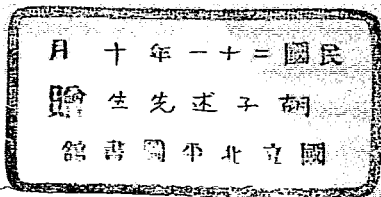 民國二十一年十月
胡子述先生贈
國立北平圖書館